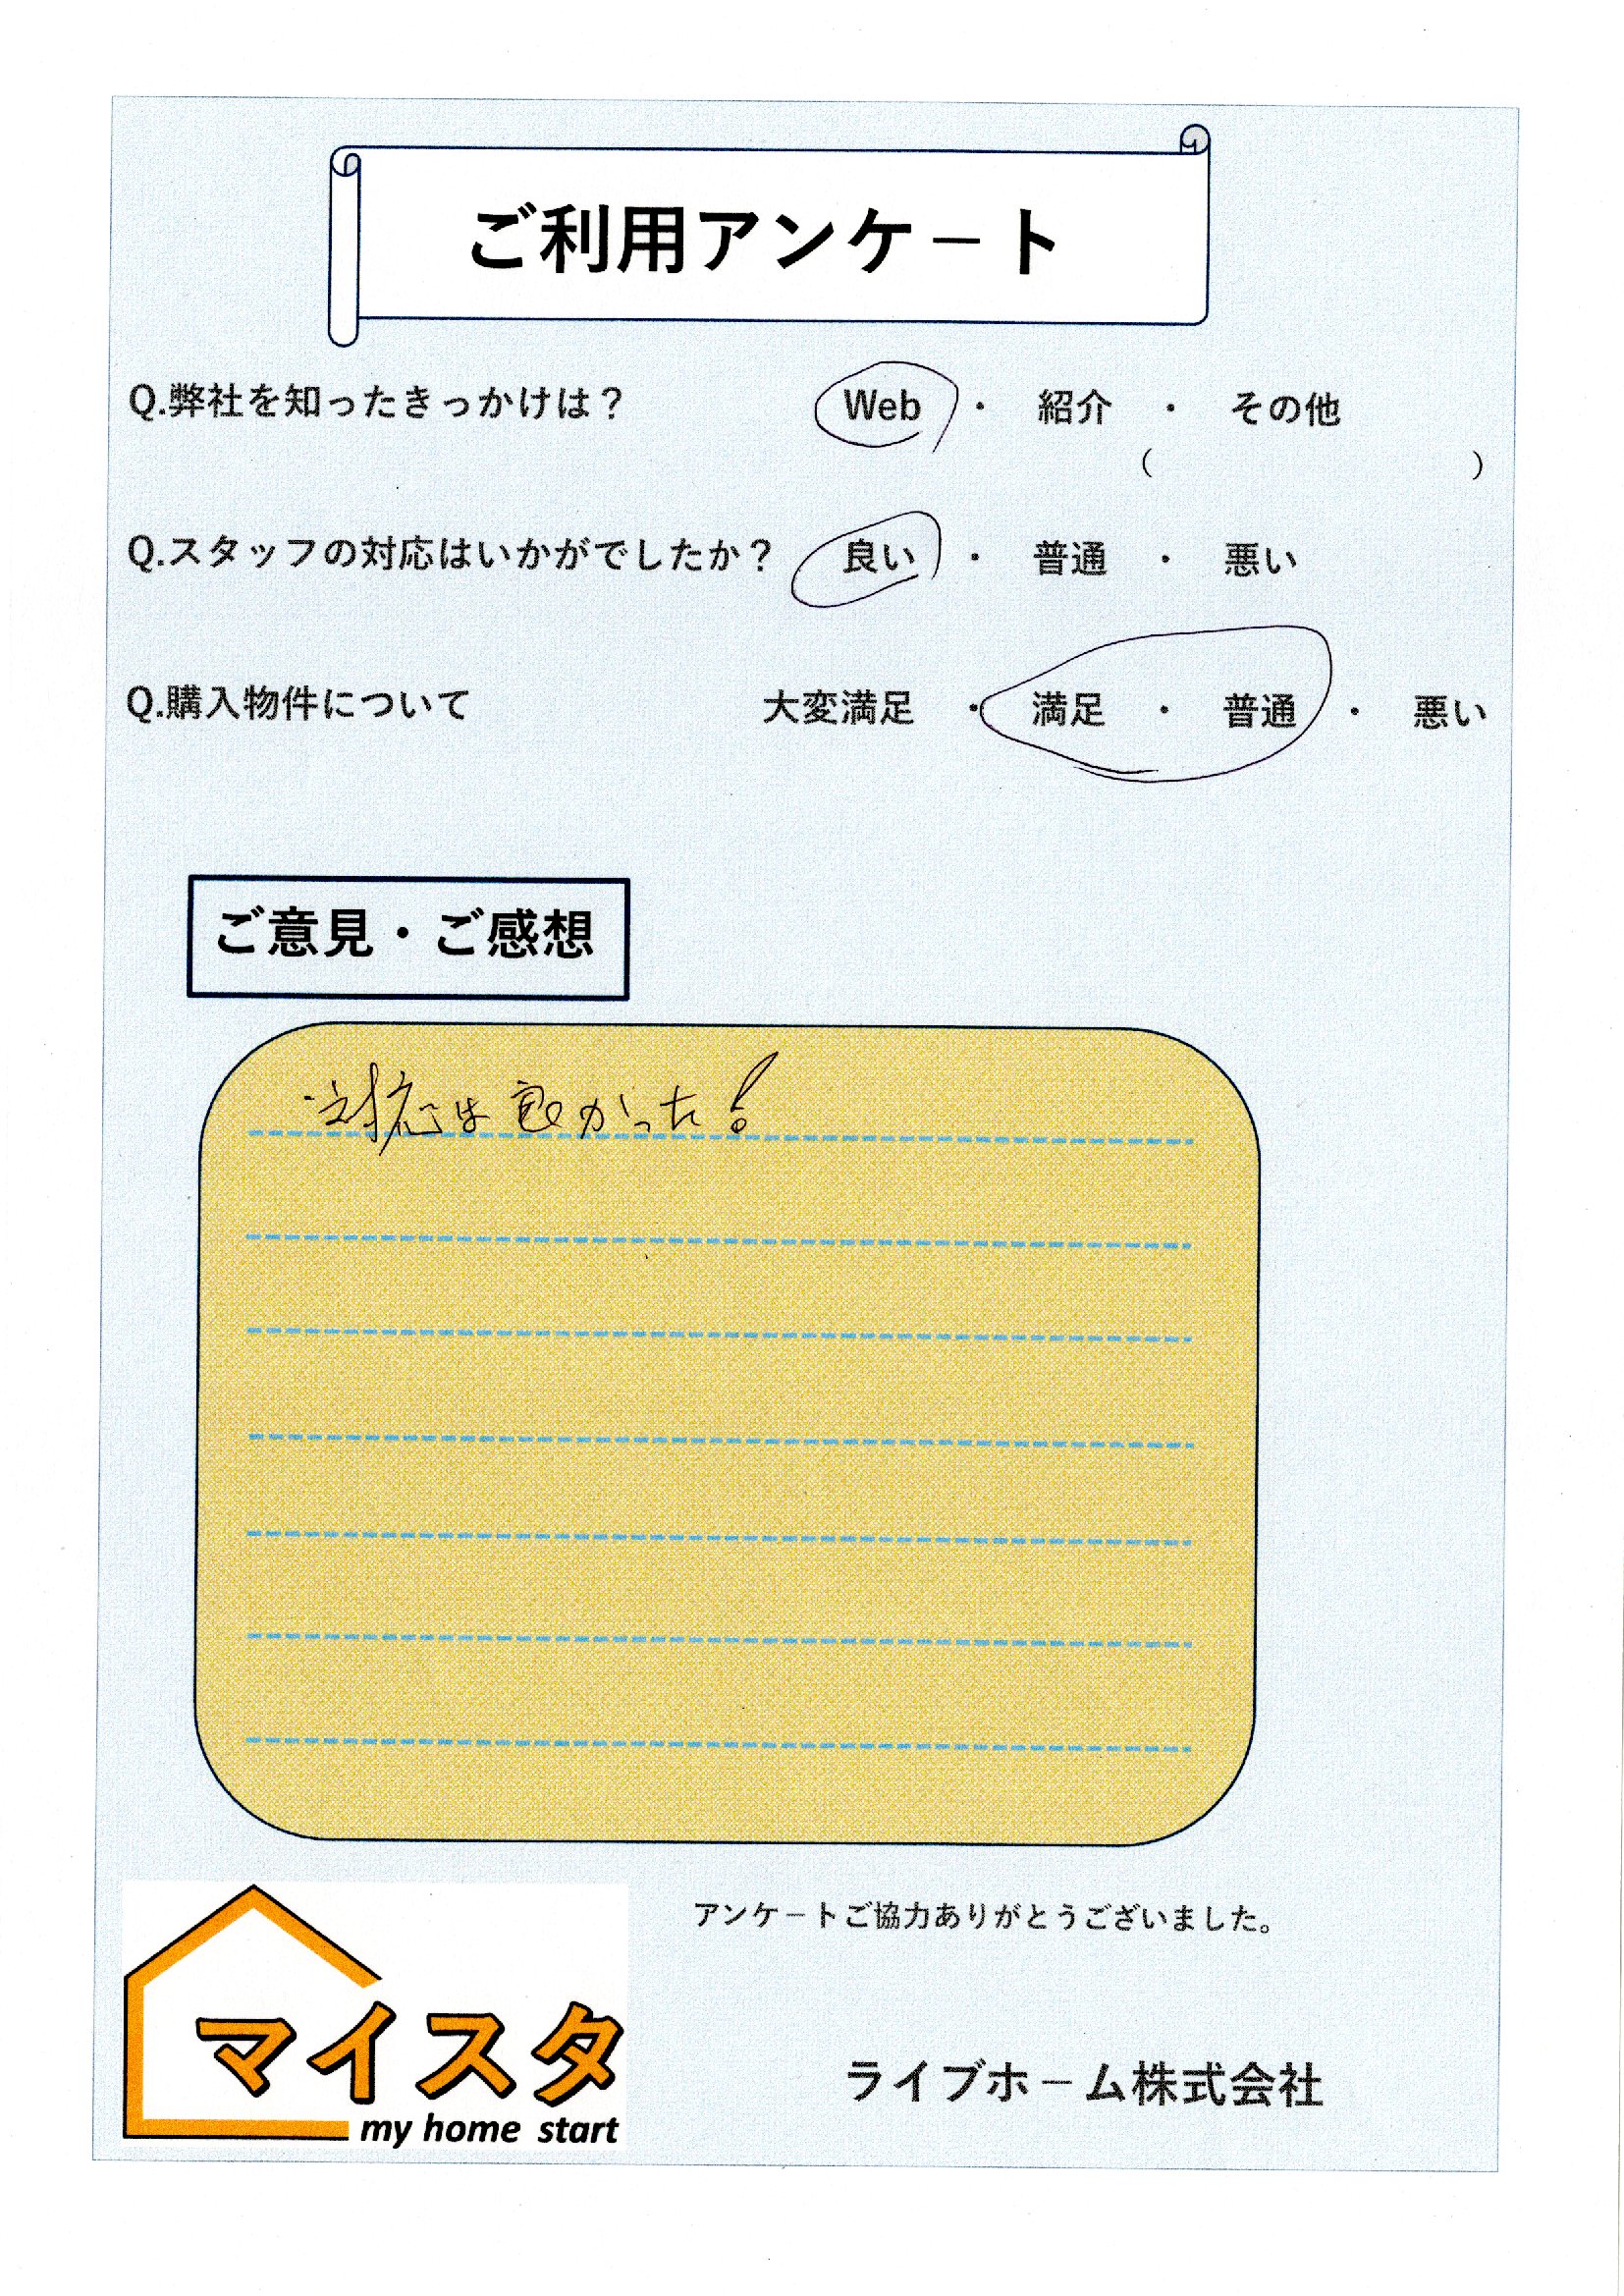 ご利用アンケート
Q.弊社を知ったきっかけは？ Web ・ 紹介 ・ その他
( )
Q.スタッフの対応はいかがでしたか？ 良い ・ 普通 ・ 悪い
Q.購入物件について 大変満足 ・ 満足 ・ 普通 ・ 悪い
ご意見・ご感想
・対応は良かった！
アンケートご協力ありがとうございました。
マイスタ
my home start
ライブホーム株式会社